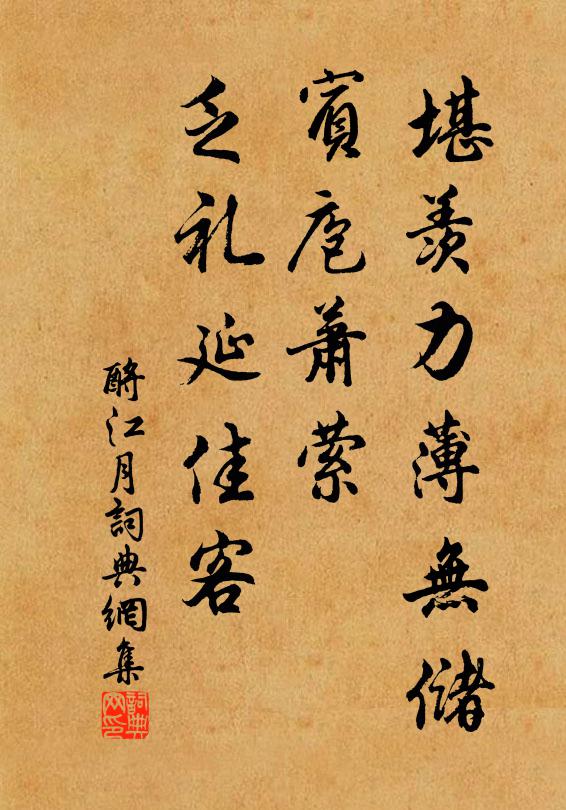 堪羨力薄無儲
賓庖蕭索
乏礼延佳客
酹江月詞典網集
詞典网印